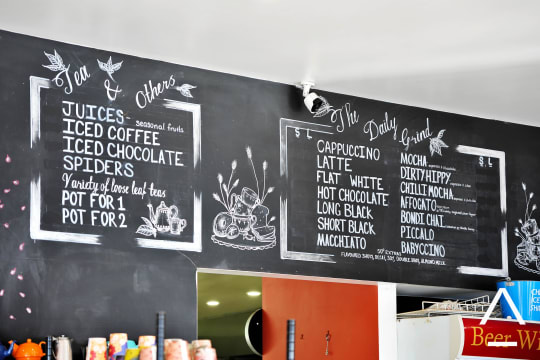 Tea & Others
JUICES - seasonal fruits
ICED COFFEE
ICED CHOCOLATE
SPIDERS
Variety of loose leaf teas
POT FOR 1
POT FOR 2
The Daily Grind
S L
CAPPUCCINO
LATTE
FLAT WHITE
HOT CHOCOLATE
LONG BLACK
SHORT BLACK
MACCHIATO
S L
MOCHA
DIRTY HIPPY
CHILLI MOCHA
AFFOGATO
BONDI CHAI
PICCALO
BABYCCINO
50¢ EXTRA
FLAVOURED SHOTS, DECAF, SOY, DOUBLE SHOT, ALMOND MILK
Beer Wi